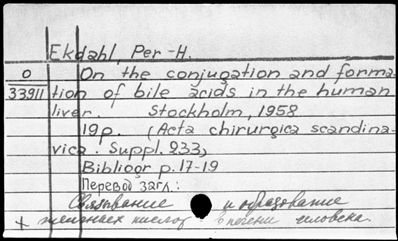 Ekdahl, Per-H.
0 On the conjugation and forma-
33911 tion of bile acids in the human
liver. Stockholm, 1958
19p. (Acta chirurgica scandina-
vica. Suppl. 233)
Bibliogr p. 17-19
Перевод загл.:
Связывание и образование
+ желчных кислот в печени человека.